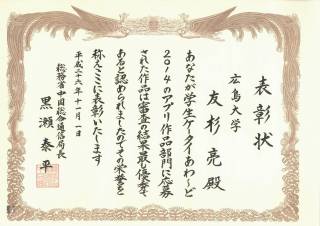 表彰状
広島大学
友杉 亮 殿
あなたが学生ケータイあわ〜ど
2014のアプリ作品部門に応募
された作品は審査の結果最も優秀で
あると認められましたのでその栄誉を
称えここに表彰いたします
平成二十六年十一月一日
総務省中国総合通信局長
黒瀬 泰平